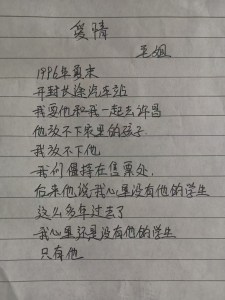 爱情
毛姐
1996年夏末
开封长途汽车站
我要他和我一起去许昌
他放不下家里的孩子
我放不下他
我们僵持在售票处.
后来他说我心里没有他的学生
这么多年过去了
我心里还是没有他的学生
只有他